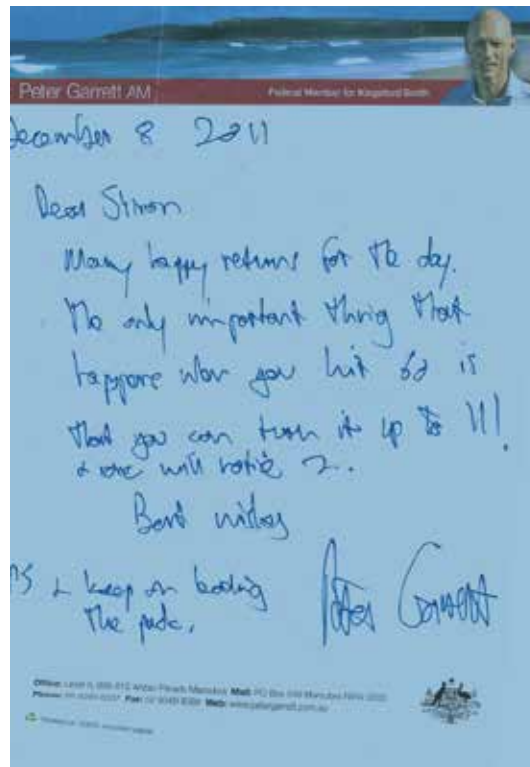 Peter Garrett AM
Federal Member for Kingsford Smith
December 8 2011
Dear Simon
Many happy returns for the day.
The only important thing that
happens when you hit 60 is
that you can turn it up to 11!
& one will notice
Best wishes
PS & keep on
the
Peter Garrett
Office: Maroubra Mail: PO Box Maroubra NSW
Phone: Fax: Web: www.petergarrett.com.au